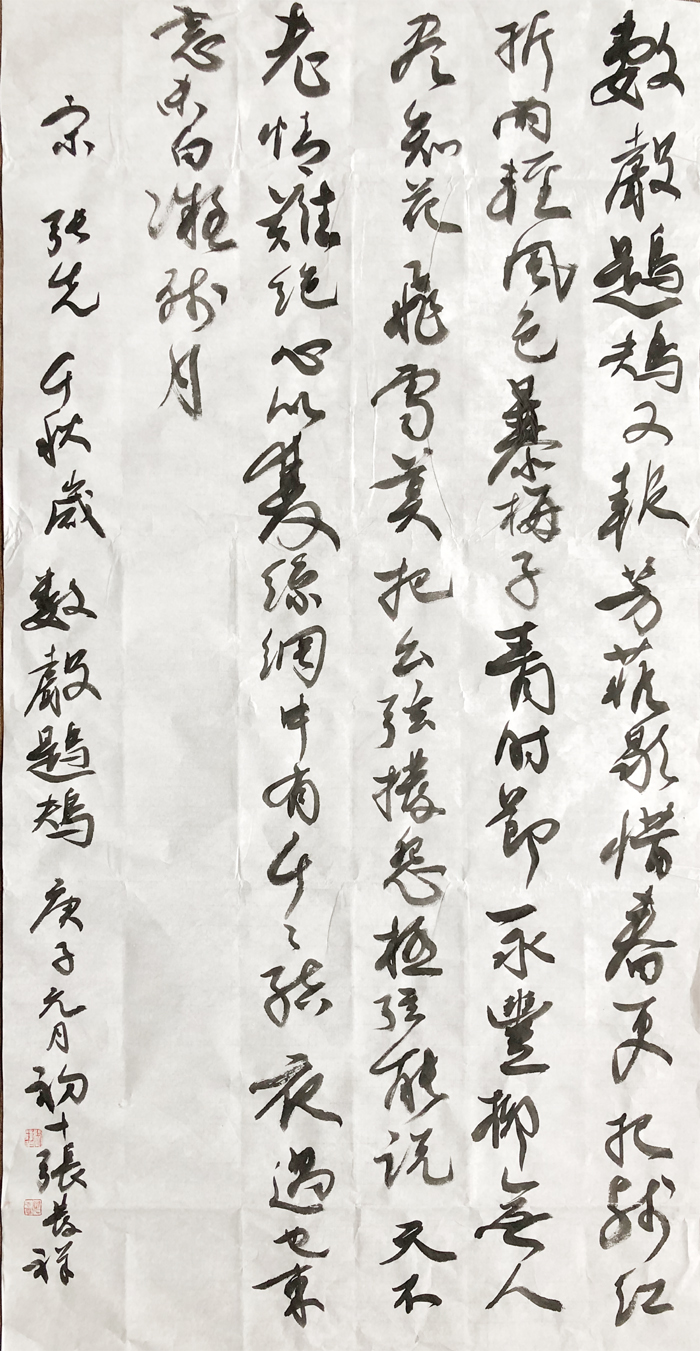 數聲鶗鴂又報芳菲歇惜春更把殘紅
折雨輕風色暴梅子青時節永豐柳無人
尽知花飛雪莫把幺弦撥怨極弦能說天不
老情難絕心似雙絲網中有千〻結夜過也東
窓未白凝殘月
宋 張先 千秋歲 數聲鶗鴂 庚子元月初十張長祥